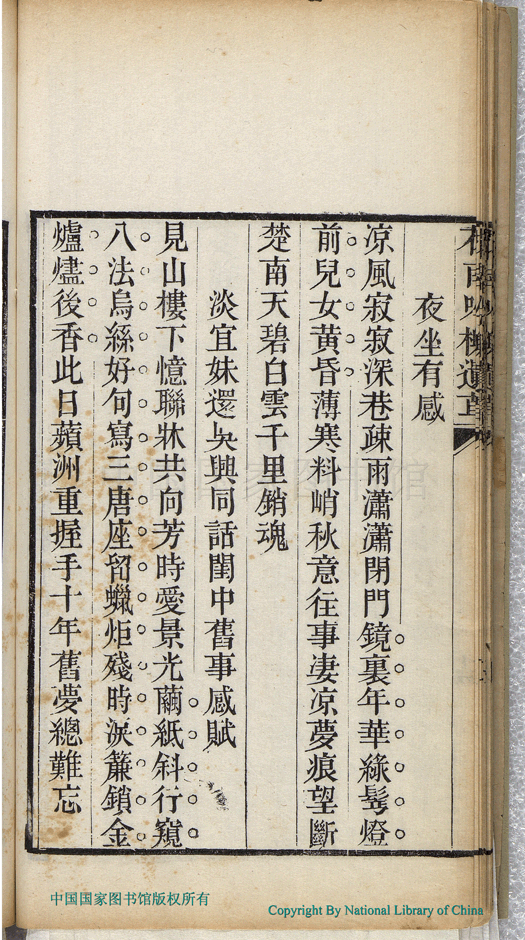 夜坐有感
凉風寂寂深巷疎雨瀟瀟閉門鏡裏年華綠鬢燈
前兒女黃昏薄寒料峭秋意往事凄凉夢痕望斷
楚南天碧白雲千里銷魂
淡宜妹還吳興同話閨中舊事感賦
見山樓下憶聯牀共向芳時愛景光繭紙斜行窺
八法烏絲好句寫三唐座留蠟炬殘時淚簾鎖金
爐燼後香此日蘋洲重握手十年舊夢總難忘
中国国家图书馆版权所有
Copyright By National Library of China